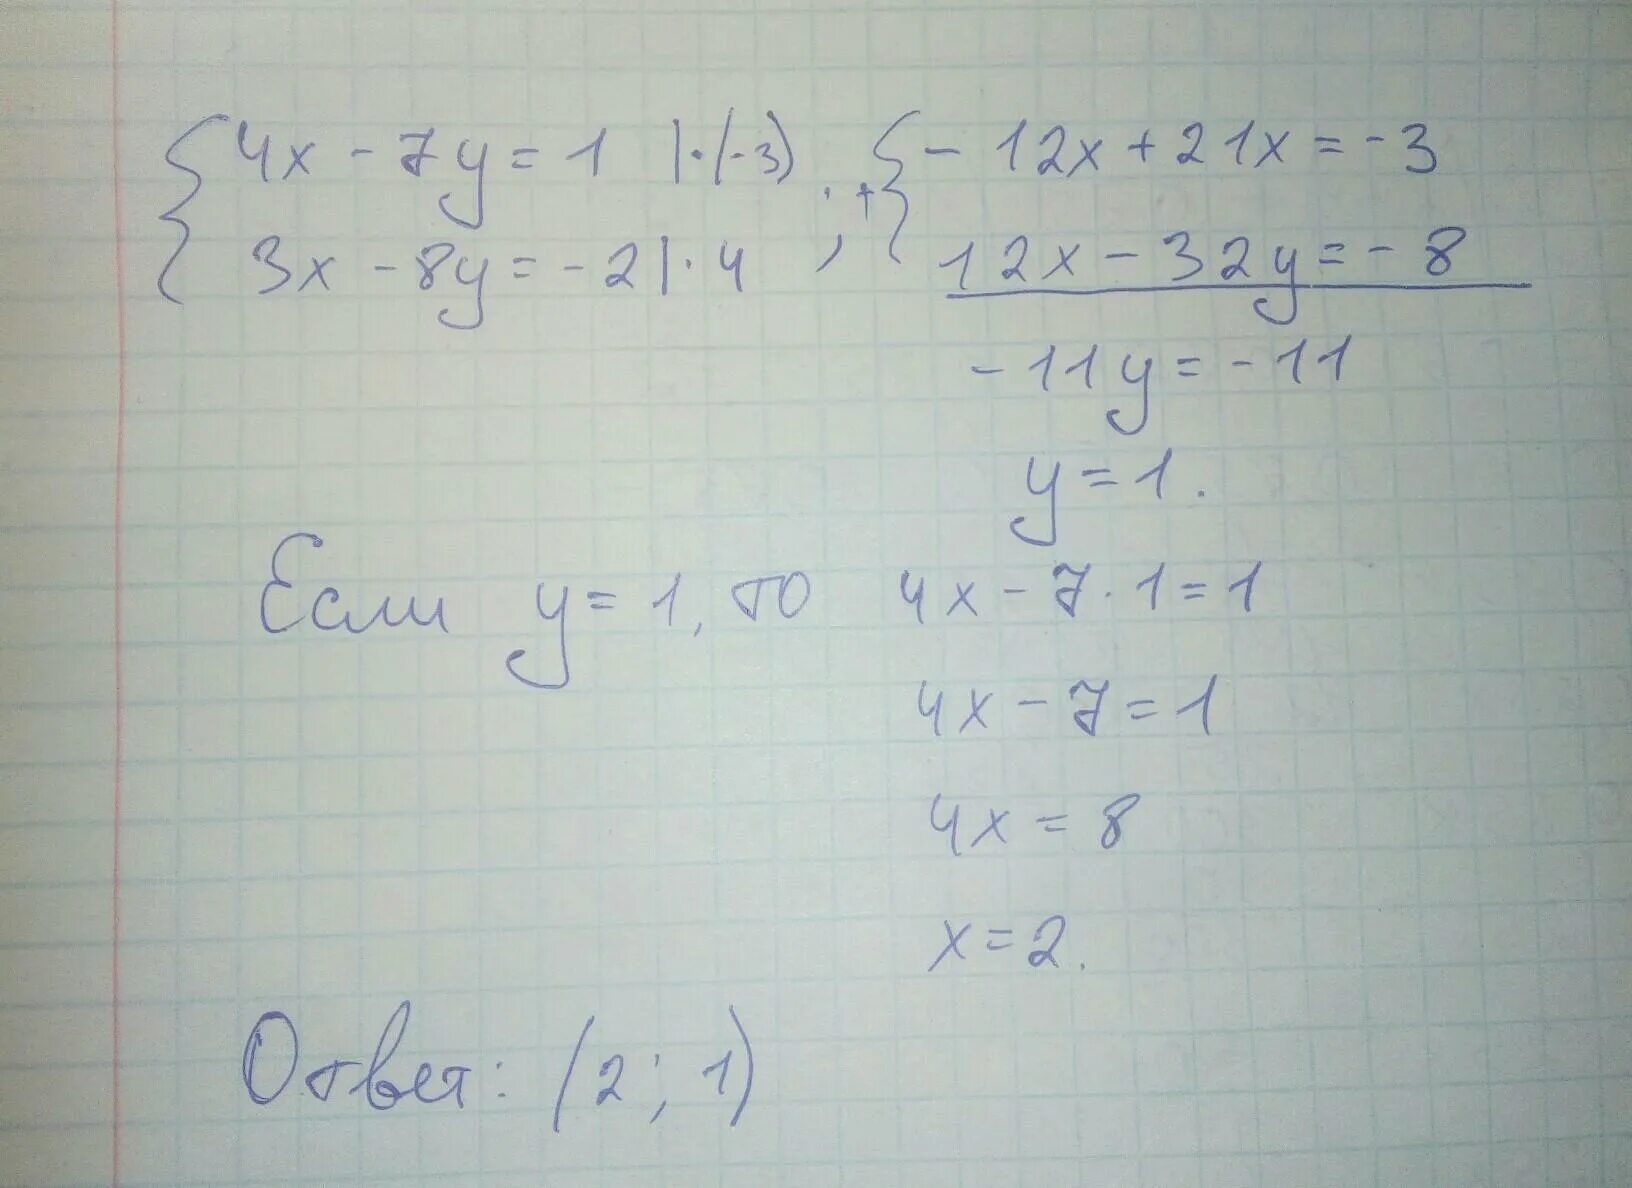 4x - 7y = 1 |·(-3) ; + - 12x + 21x = -3
3x - 8y = -2 |· 4 12x - 32y = - 8
-11y = -11
y = 1.
Если y = 1, то 4x - 7 · 1 = 1
4x - 7 = 1
4x = 8
x = 2.
Ответ: (2 ; 1)